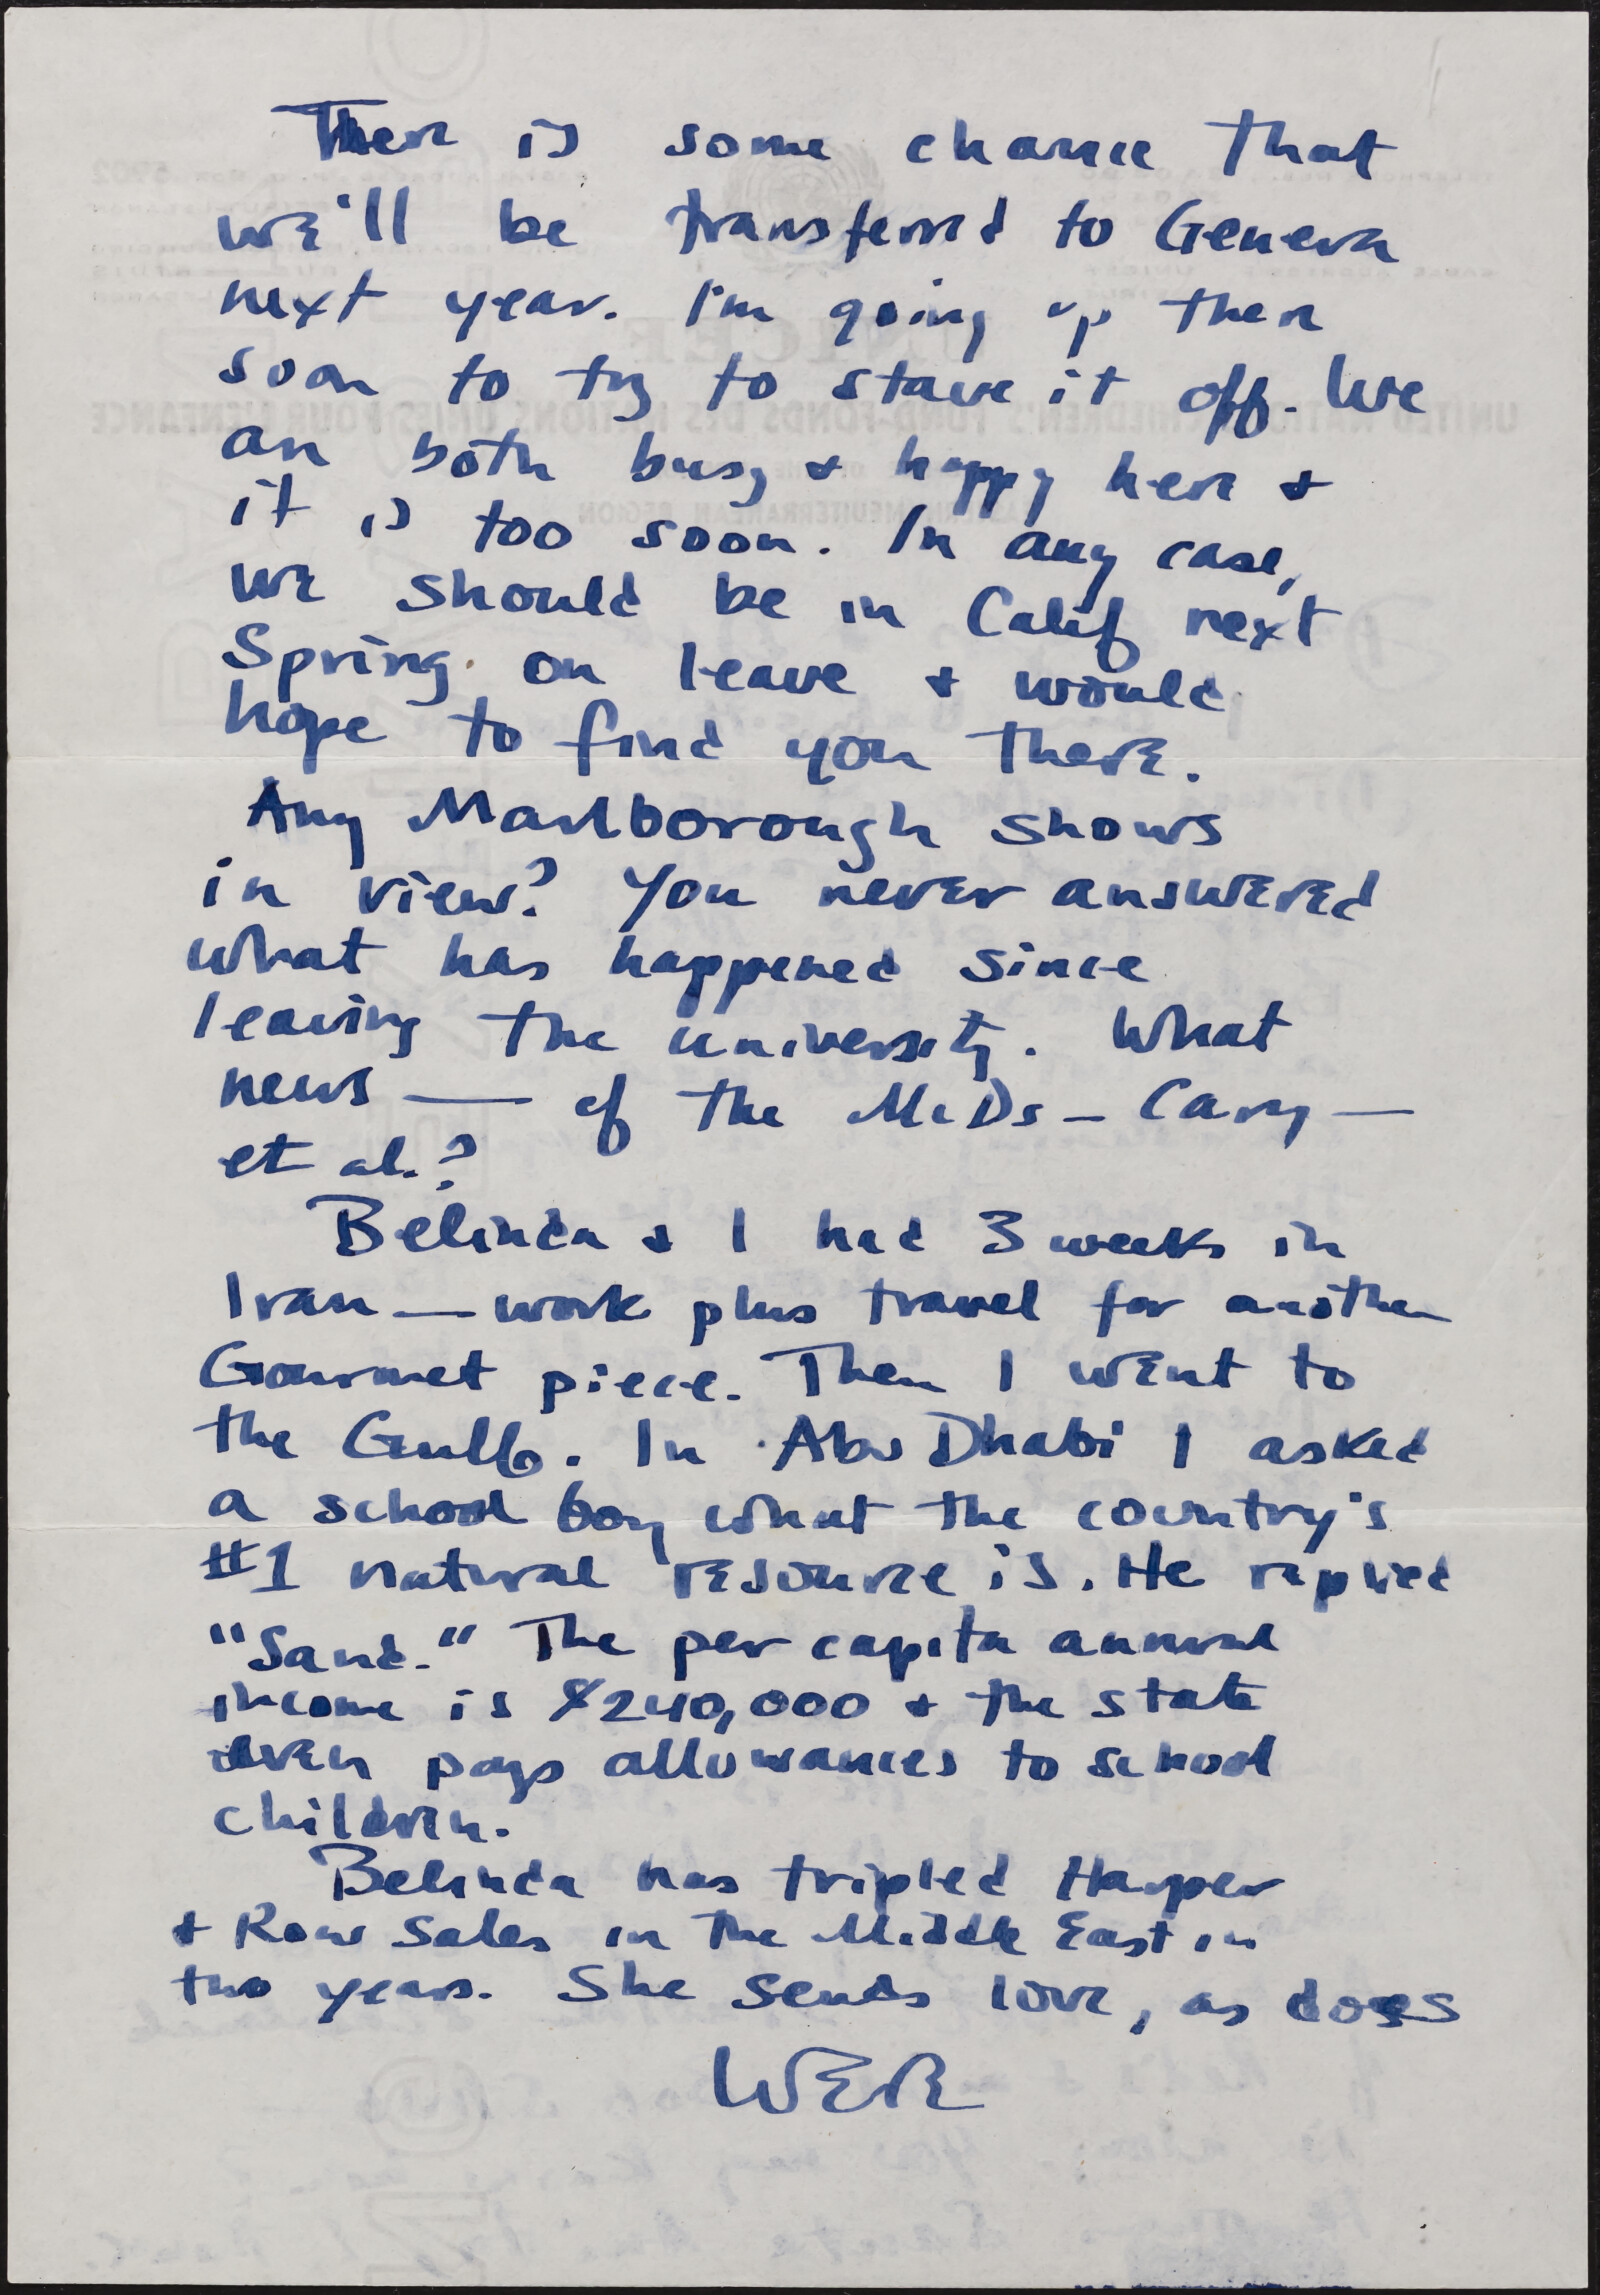 There is some chance that
we'll be transferred to Geneva
next year. I'm going up there
soon to try to stave it off. We
are both busy + happy here +
it is too soon. In any case,
we should be in Calif next
Spring on leave + would
hope to find you there.
Any Marlborough shows
in view? You never answered
what has happened since
leaving the university. What
news — of the McDs - Cary —
et al.?
Belinda + I had 3 weeks in
Iran — work plus travel for another
Gourmet piece. Then I went to
the Gulf. In Abu Dhabi I asked
a school boy what the country's
#1 natural resource is. He replied
"Sand." The per capita annual
income is $240,000 + the state
even pays allowances to school
children.
Belinda has tripled Harper
+ Row sales in the Middle East in
two years. She sends love, as does
WER